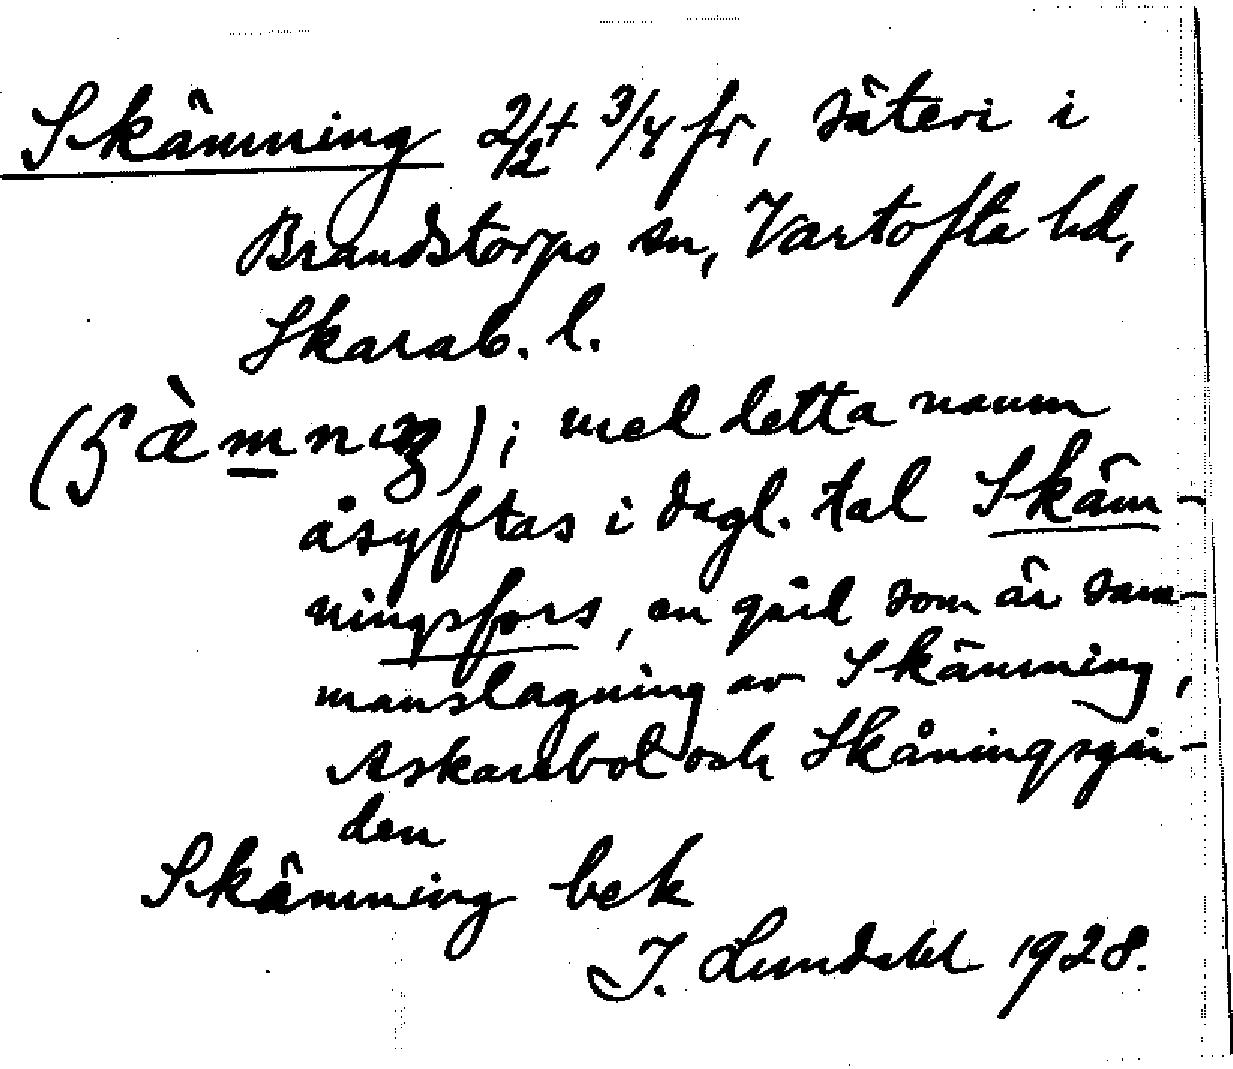 Skämning 2/2+ 3/4 fr, säteri i
Brandstorps sn, Vartofta hd,
Skarab. l.
med detta namn
åsyftas i dagl. tal Skäm-
ningsfors, en gård som är sam-
manslagning av Skämning,
Askarebol och Skåningsgår-
den
Skämning bek
J. Lundahl 1928.